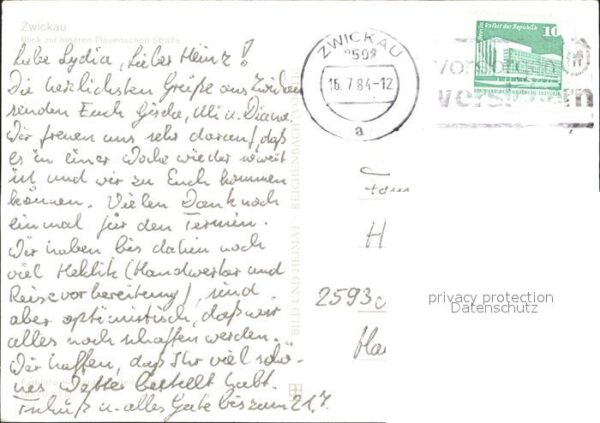 Zwickau
Blick zur inneren Plauenschen Straße
Liebe Lydia, Lieber Heinz!
Die herzlichsten Grüße aus Zwickau
senden Euch Gerda, Uli u. Diana.
Wir freuen uns sehr darauf, daß
es in einer Woche wieder soweit
ist und wir zu Euch kommen
können. Vielen Dank noch
einmal für den Termin.
Wir haben bis dahin noch
viel Hektik (Handwerker und
Reisevorbereitung), sind
aber optimistisch, daß wir
alles noch schaffen werden.
Wir hoffen, daß Ihr viel schö-
nes Wetter bestellt habt.
Tschüß u. alles Gute bis zum 21.7.
BILD UND HEIMAT REICHENBACH
ZWICKAU
16.7.84-12
a
Palast der Republik
10
vorsorgen
versichern
H
2593
privacy protection
Datenschutz